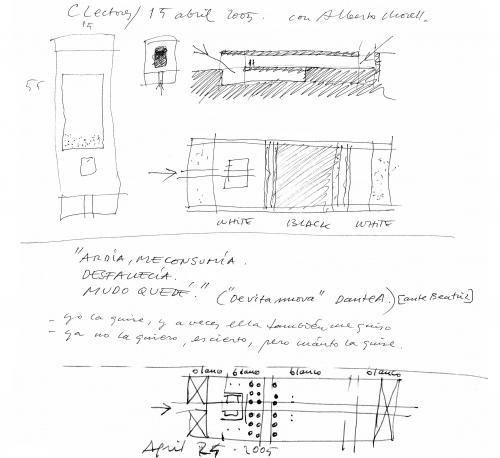 C Lectores/ 15 abril 2005. con Alberto Morell.
15
55
WHITE BLACK WHITE
"ARDÍA, ME CONSUMÍA.
DESFALLECÍA.
MUDO QUEDÉ." ("De vita nuova" Dante A.) [ante Beatriz]
- yo la quise, y a veces ella también me quiso
- ya no la quiero, es cierto, pero cuánto la quise.
blanco blanco blanco blanco
April 25 - 2005